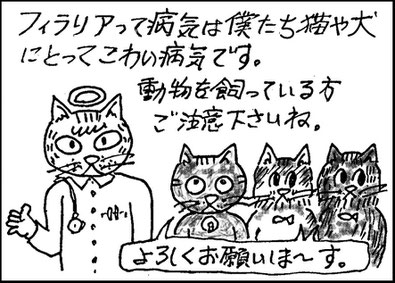 フィラリアって病気は僕たち猫や犬
にとってこわい病気です。
動物を飼っている方
ご注意下さいね。
よろしくお願いしま〜す。